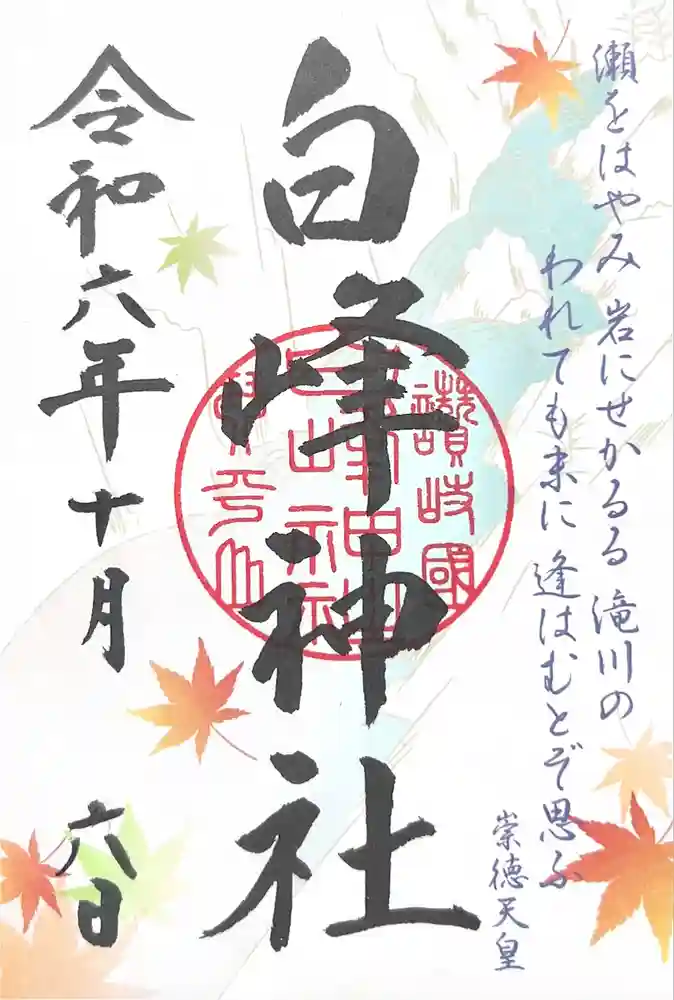 瀬をはやみ 岩にせかるる 滝川の
われても末に 逢はむとぞ思ふ
崇徳天皇
白峰神社
讃岐國
令和六年十月
六日